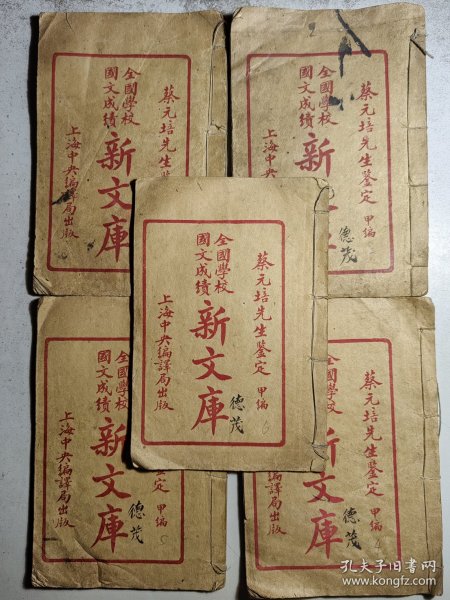 蔡元培先生鉴
全國學校
國文成績
新文庫
上海中央編譯局出版
蔡元培先生鑒定
甲編
全國學校
國文成績
新
德茂
蔡元培先生鑒定
甲編
全國學校
國文成績
新文庫
上海中央編譯局出版
德茂
6
定
甲編
全國學校
國文成績
新文庫
上海中央編譯局出版
德茂
蔡元培先生鑒定
甲編
學校
文庫
局出版
德茂
孔夫子旧书网
www.kongfz.com